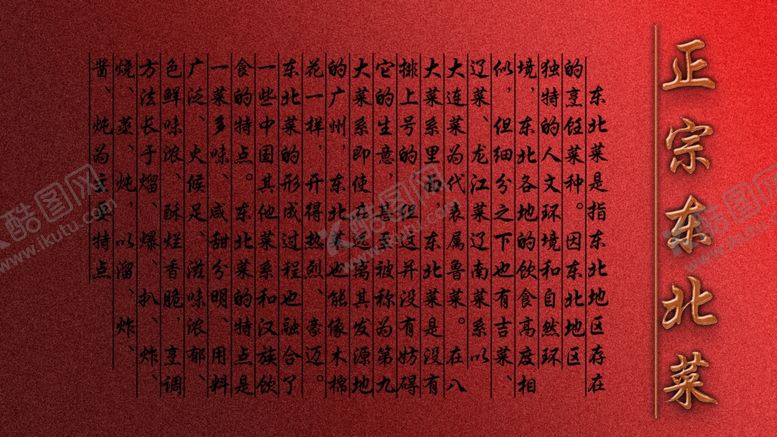 正宗东北菜
东北菜是指东北地区存在
的烹饪菜种。因东北地区
独特的人文环境和自然环
境,东北各地的饮食高度相
似,但细分之下也有吉菜、
辽菜、龙江菜辽南菜系以
大连菜为代表属鲁菜。在八
大菜系里面,东北菜是没有
排上号的,但这并没有妨碍
它的生意,甚至被称为第九
大菜系即使在远离其发源地
的广州,东北菜也能像木棉
花一样,开得热烈、豪迈。
东北菜的形成过程也融合了
一些中国其他菜系和汉族饮
食的特点。东北菜的特点是
一菜多味、咸甜分明、用料
广泛、火候足、滋味浓郁、
色鲜味浓、酥烂香脆,烹调
方法长于熘、爆、扒、炸、
烧、蒸、炖,以溜、炸、
酱、炖为主要特点
酷图网
www.ikutu.com